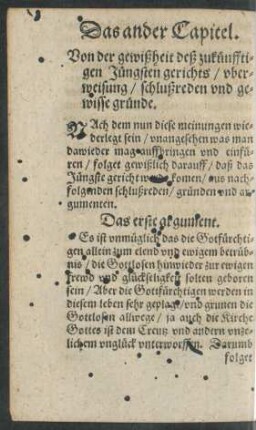 Das ander Capitel.
Von der gewißheit deß zukünffti-
gen Jüngsten gerichts / vber-
weisung / schlußreden vnd ge-
wisse gründe.
NAch dem nun diese meinungen wie-
derlegt sein / vnangesehen was man
dawieder mag auffbringen vnd einfü-
ren / folget gewißlich darauff / daß das
Jüngste gericht werde komen / aus nach-
folgenden schlußreden / gründen vnd ar-
gumenten.
Das erste argument.
Es ist vnmüglich das die Gotfürchti-
gen allein zum elend vnd ewigem betrüb-
nis / die Gottlosen hinwieder zur ewigen
frewd vnd glückseligkeit solten geboren
sein / Aber die Gottfürchtigen werden in
diesem leben sehr geplagt / vnd grunen die
Gottlosen allwege / ja auch die Kirche
Gottes ist dem Creutz vnd andern vnze-
lichem vnglück vnterworffen. Darumb
folget